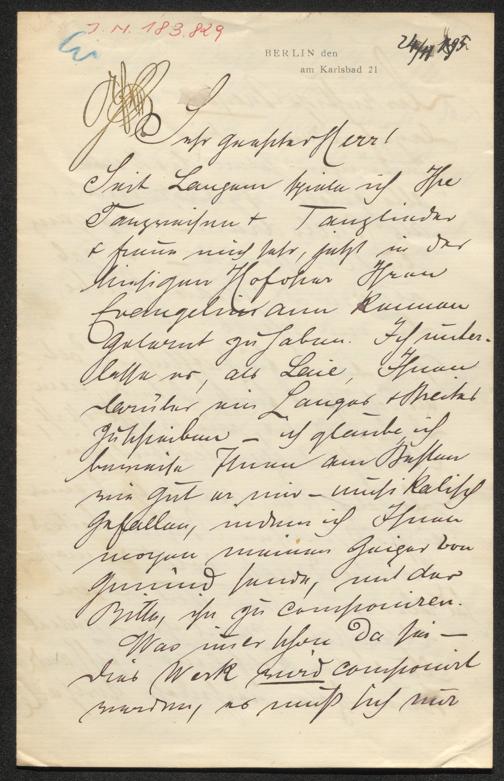 J. N. 183.829
24/4 895.
BERLIN den
am Karlsbad 21
Sehr geehrter Herr!
Seit Langem spiele ich Ihre
Tanzweisen + Tanzlieder
+ freue mich sehr, jetzt in der
hiesigen Hofoper Ihren
Evangelimann kennen
gelernt zu haben. Ich unter-
lasse es, als Laie, Ihnen
darüber ein Langes + Breites
zu schreiben – ich glaube ich
beweise Ihnen am Besten
wie gut er mir – musikalisch
gefallen, indem ich Ihnen
morgen meinen Geiger von
Gmünd sende, mit der
Bitte, ihn zu componiren.
Was nun schon da sei –
dies Werk wird componirt
werden, es muß sich nur